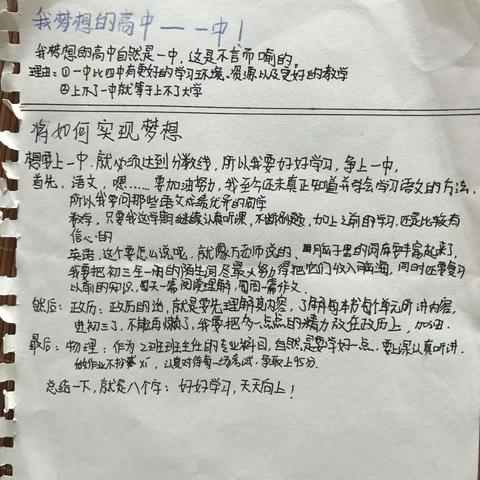 我梦想的高中——一中!
我梦想的高中自然是一中,这是不言而喻的。
理由:①一中比四中有更好的学习环境、资源以及更好的教学
②上不了一中就等于上不了大学
将如何实现梦想
想要上一中,就必须达到分数线,所以我要好好学习,争上一中。
首先,语文,嗯……要加油努力,我至今还未真正知道并学会学习语文的方法,
所以我要问那些语文成绩优异的同学
数学,只要我这学期继续认真听课,不断刷题,加上之前的学习,还是比较有
信心的
英语,这个要怎么说呢,就像方老师说的,脑子里的词库要丰富起来了,
我要把初三至一册的陌生词,尽最大努力得把它们收入脑海,同时还要复习
以前的知识,每天一篇阅读理解,每周一篇作文。
然后:政历:政历的话,就是要先理解其内容,了解每本书每个单元所讲内容,
进初三了,不能再懒了,我要把多一点点的精力放在政历上,加油.
最后:物理:作为2班班主任的专业科目,自然是要学好一点,要上课认真听讲,
做作业不抄袭xí,认真对待每一场考试,争取上95分.
总结一下,就是八个字:好好学习,天天向上!